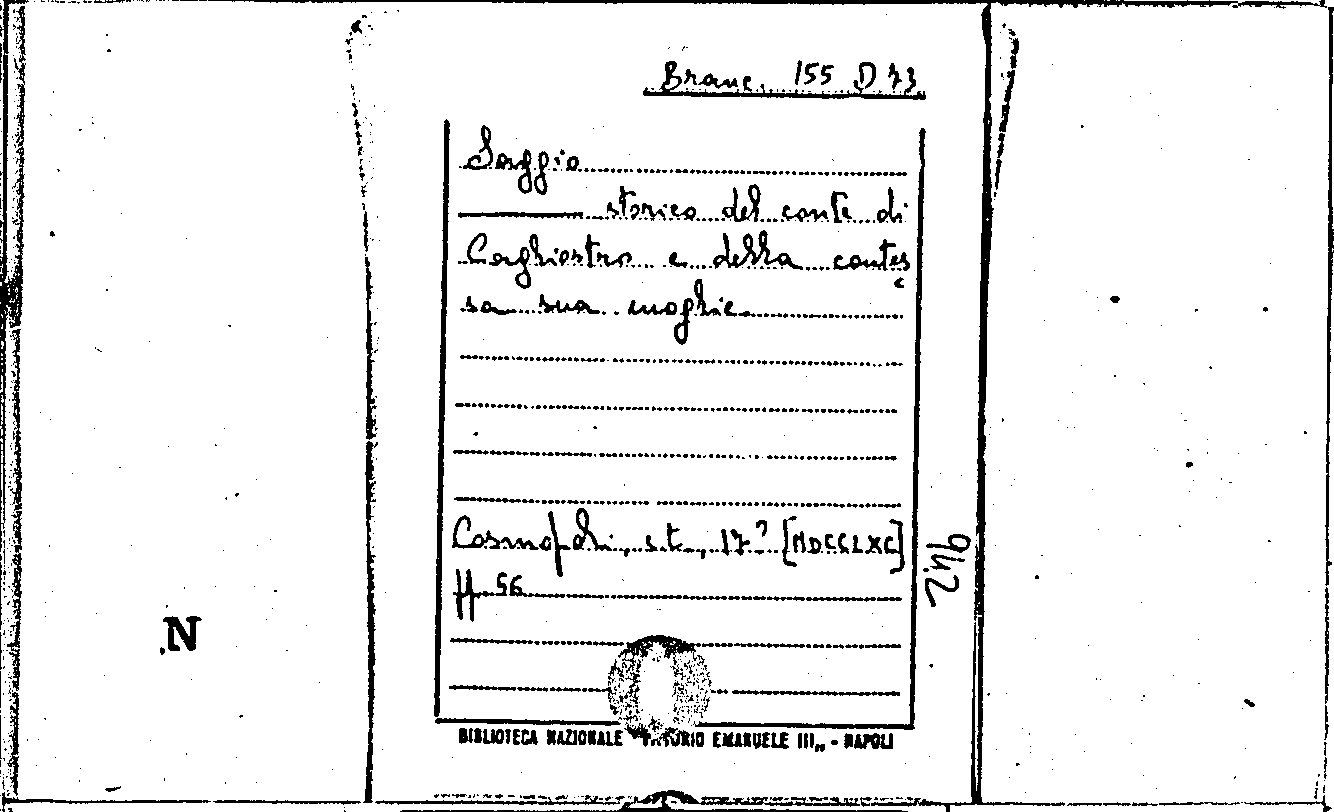 Branc. 155 D 73
Saggio
storico del conte di
Cagliostro e della contes
sa sua moglie.
Cosmopoli, s.t., 17? [MDCCLXC]
pp. 56
942
N
BIBLIOTECA NAZIONALE VITTORIO EMANUELE III„ - NAPOLI